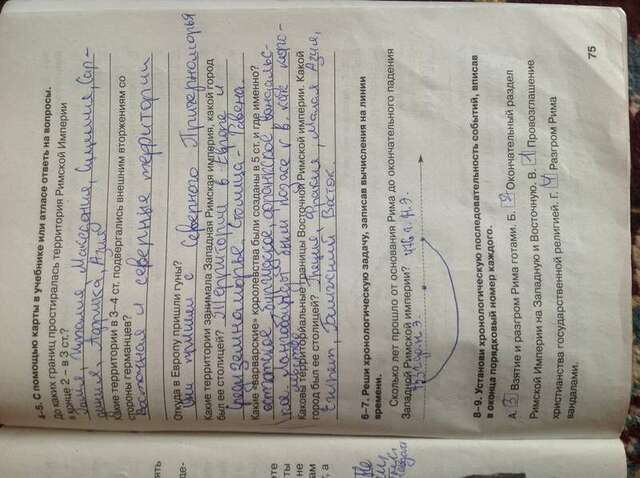 4–5. С помощью карты в учебнике или атласе ответь на вопросы.
До каких границ простиралась территория Римской Империи
в конце 2 – в 3 ст.?
Италия, Македония, Сицилия, Сар-
диния, Африка, Азия
Какие территории в 3–4 ст. подвергались внешним вторжениям со
стороны германцев?
Восточная и северные территории
Откуда в Европу пришли гуны?
Они пришли с Северного Причерноморья
Какие территории занимала Западная Римская империя, какой город
был ее столицей? Территории в Европе и
Средиземноморье. Столица – Равена.
Какие «варварские» королевства были созданы в 5 ст. и где именно?
франкское, вандальс-
кое. Лангобарды были позже
Каковы территориальные границы Восточной Римской империи. Какой
город был ее столицей? Греция, Фракия, Малая Азия,
Египет, Ближний Восток.
6–7. Реши хронологическую задачу, записав вычисления на линии
времени.
Сколько лет прошло от основания Рима до окончательного падения
Западной Римской империи? 476 г. н.э.
753 г. до н.э.
8–9. Установи хронологическую последовательность событий, вписав
в оконца порядковый номер каждого.
А. 3 Взятие и разгром Рима готами. Б. 2 Окончательный раздел
Римской Империи на Западную и Восточную. В. 1 Провозглашение
христианства государственной религией. Г. 4 Разгром Рима
вандалами.
75